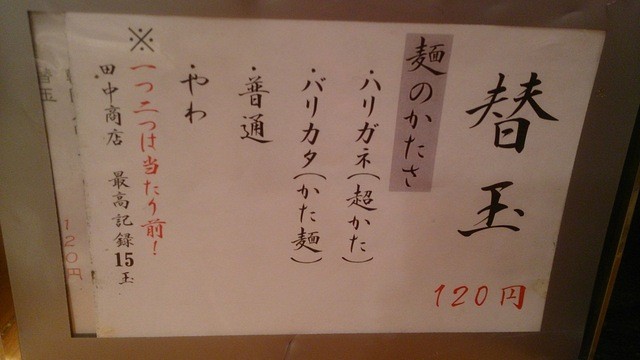 替玉
120円
麺のかたさ
・ハリガネ(超かた)
・バリカタ(かた麺)
・普通
・やわ
※一つ二つは当たり前!
田中商店 最高記録15玉
120円
替玉